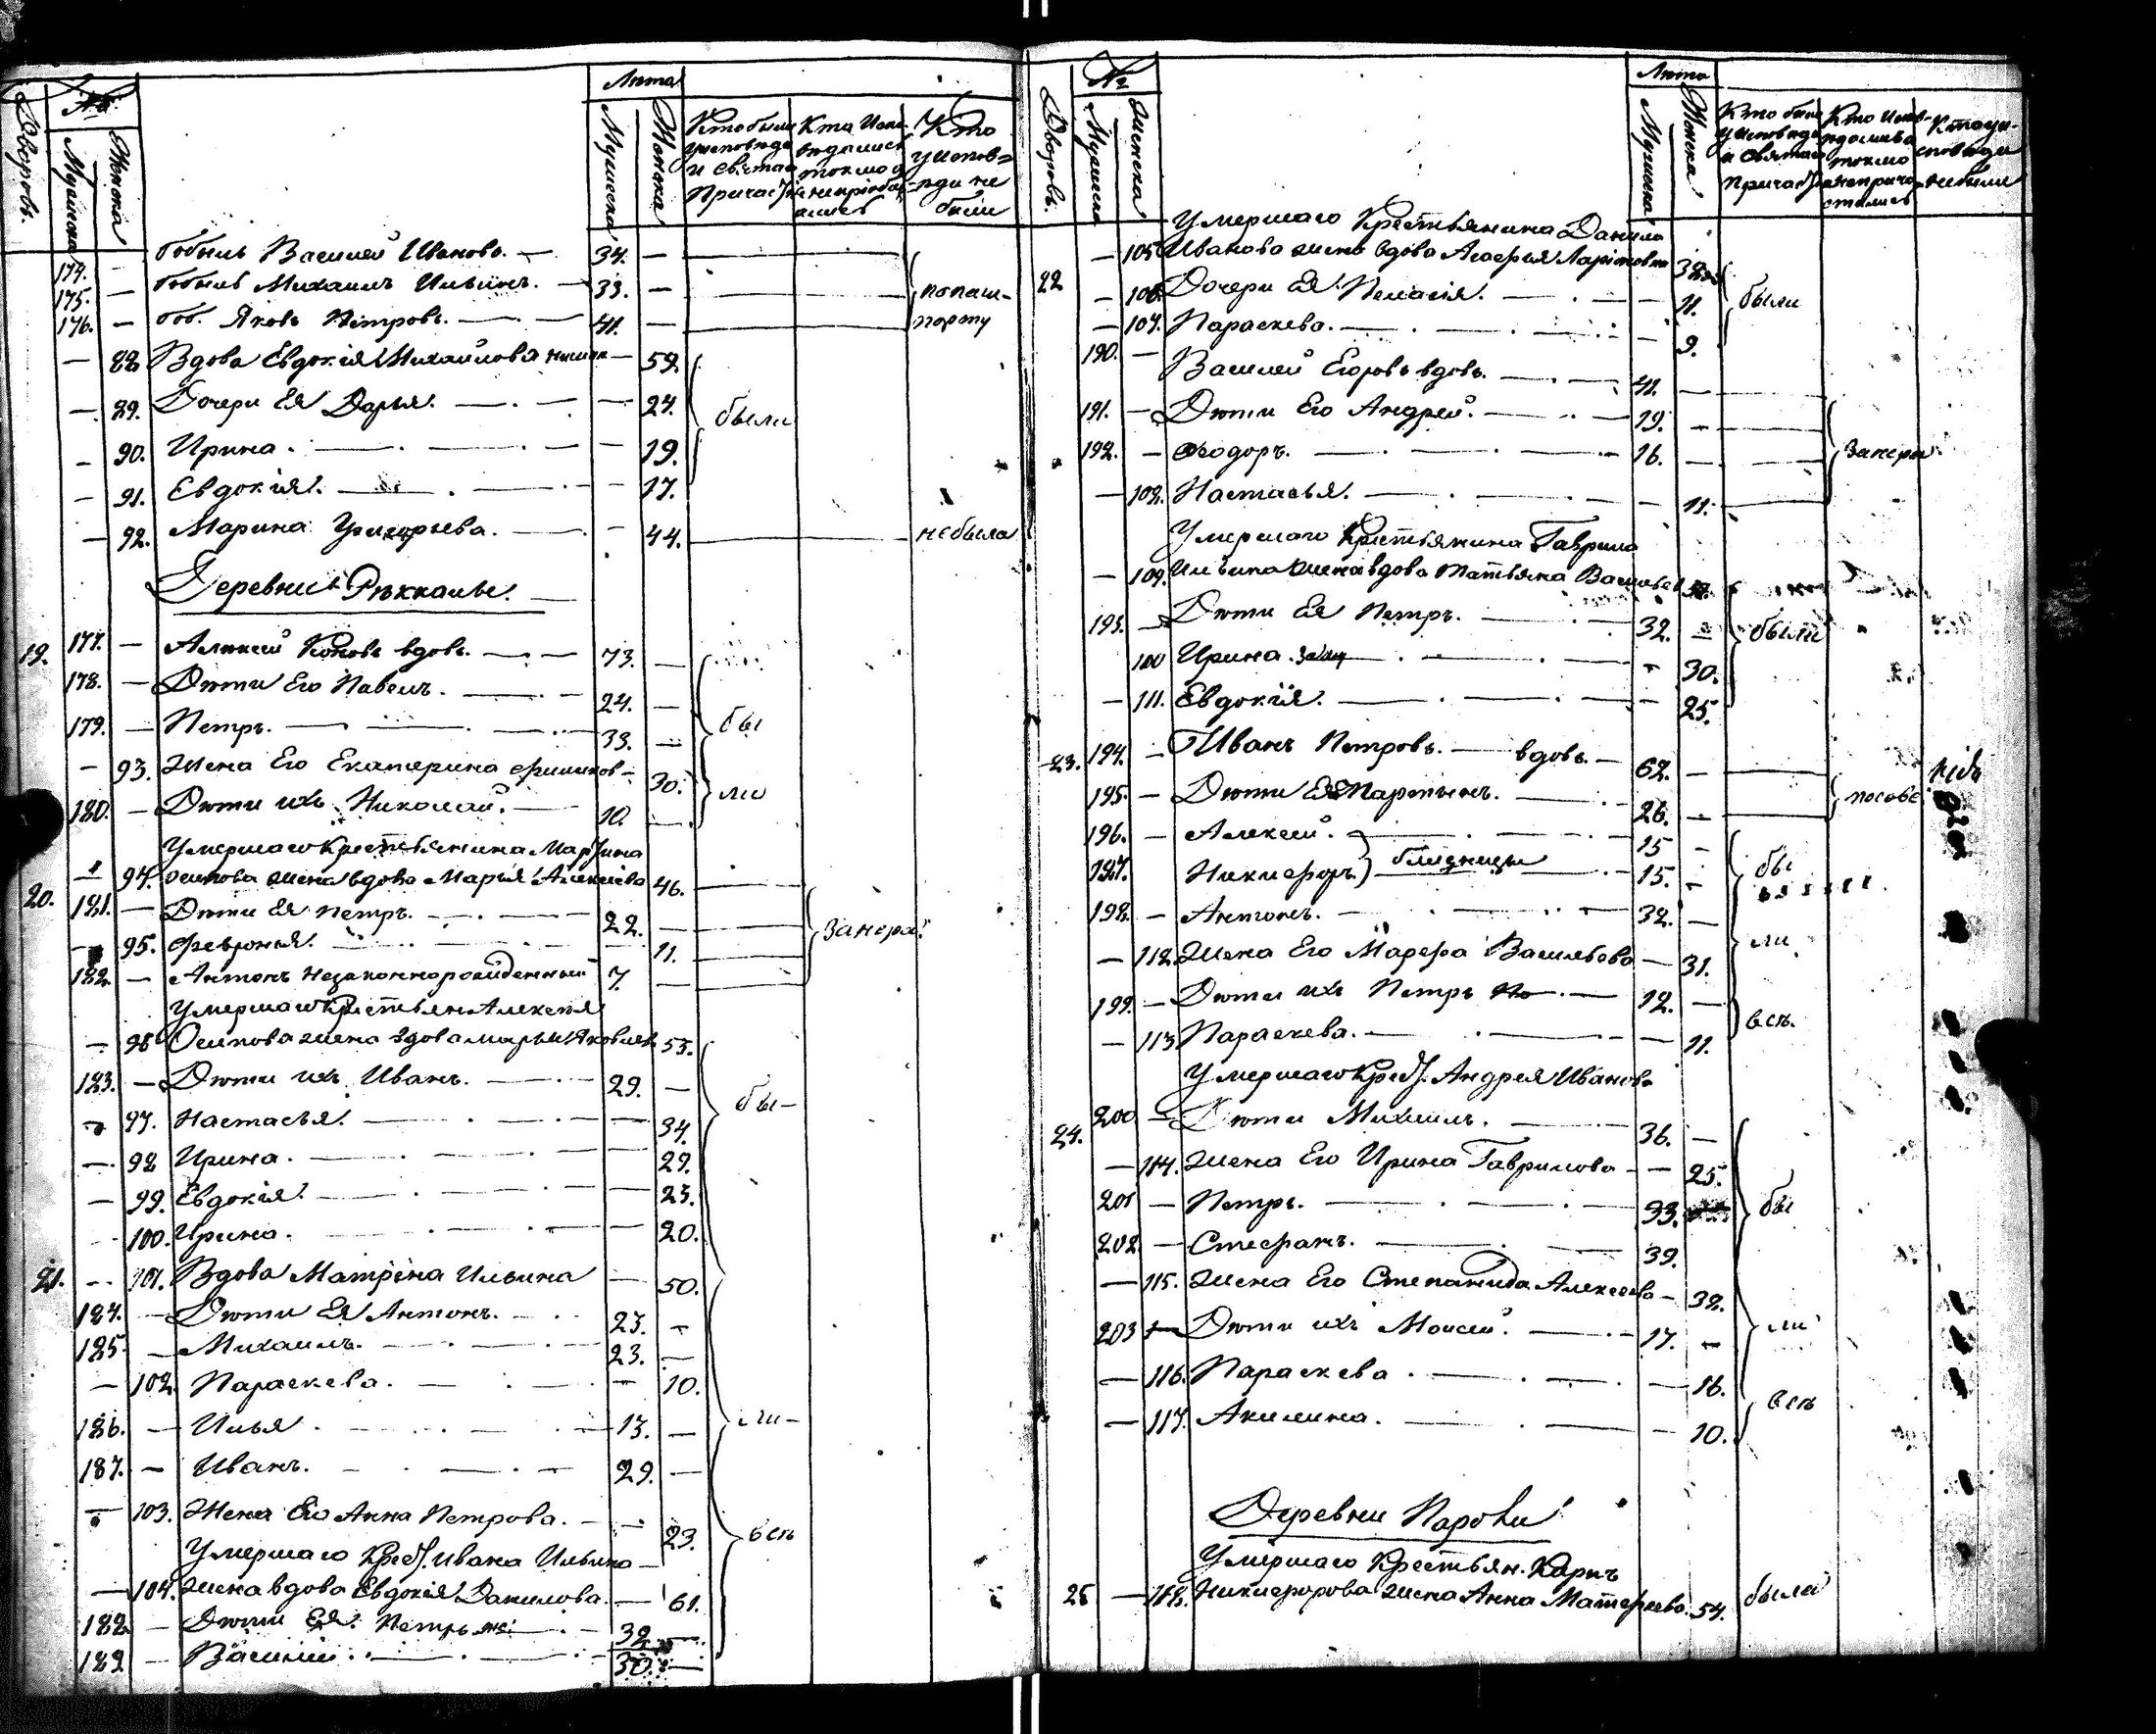 Дворовъ.
№
Мужеска
Женска
Лѣта
Мужеска
Женска
Кто были у исповѣди и святаго Причас
Кто исповѣдался токмо а не приобщались
Кто у исповѣди не были
174. — бобыль Василей Ивановъ. — 34. —
175. — бобыль Михаилъ Ильинъ. — 33. — по паш-
176. — боб. Яковъ Петровъ. — 41. — порту
— 88 Вдова Евдокія Михайлова — 59.
— 89. Дочери Ея Дарья. — 24. были
— 90. Ирина. — 19.
— 91. Евдокія. — 17.
— 92. Марина Григорьева. — 44. не была
Деревни
19. 177. — Алексей вдовъ. — 73. —
178. — Дѣти Его Павелъ. — 24. —
179. — Петръ. — 33. — бы
— 93. Жена Его Екатерина — 30.
180. — Дѣти ихъ Николай. — 10. — ли
Умершаго Крестьянина
20. — 94. Осипова жена вдова Марья Алексіева 46.
181. — Дѣти Ея Петръ. — 22. —
— 95. Февронья. — 11.
182. — Антонъ незаконнорожденный 7. —
Умершаго Крестьян Алексея
— 96 Осипова жена вдова Марья Яковлев 55.
183. — Дѣти ихъ Иванъ. — 29. —
— 97. Настасья. — 34. бы-
— 98 Ирина. — 29.
— 99. Евдокія. — 25.
— 100. Ирина. — 20.
21. — 101. Вдова Матрена Ильина — 50.
184. — Дѣти Ея Антонъ. 25. —
185. — Михаилъ. — 23. —
— 102. Параскева. — 10.
186. — Илья — 13. — ли-
187. — Иванъ. — 29. —
— 103. Жена Его Анна Петрова. — 23. всѣ
Умершаго Крест. Ивана Ильина
— 104. жена вдова Евдокія Данилова. — 61.
188. — Дѣти Ея: Петръ — 32 —
189 — Василий. — 30. —
Дворовъ.
№
Мужеска
Женска
Лѣта
Мужеска
Женска
Кто были у исповѣди и святаго Причас
Кто исповѣдались токмо а не причастились
Кто у исповѣди не были
Умершаго Крестьянина Данила
22 — 105 Иванова жена вдова Агафья
— 106 Дочери Ея: Пелагія. — 11. были
— 107. Параскева. — 9.
190. — Василей Егоровъ вдовъ. — 41. —
191. — Дѣти Его Андрей. — 19. —
192. — Ѳеодоръ. — 16. —
— 108. Настасья. — 11.
Умершаго Крестьянина Гаврила
— 109. Ильина жена вдова Татьяна
193. — Дѣти Ея Петръ. — 32. — были
100 Ирина — 30.
— 111. Евдокія. — 25.
23. 194. — Иванъ Петровъ. — вдовъ. — 62. —
195. — Дѣти Мартынъ. — 26. —
196. — Алексей. — 15 —
197. Никифоръ) близнецы — 15. — бы
198. — Антонъ. — 32. —
— 112. Жена Его Марфа Васильева — 31. ли
199. — Дѣти ихъ Петръ — 12. —
— 113 Параскева. — 11. всѣ.
Умершаго Крест. Андрея Иванова
24. 200 — Дѣти Михаилъ. — 36. —
— 114. Жена Его Ирина Гаврилова — 25.
201 — Петръ. — 33. бы
202. — Стефанъ. — 39.
— 115. Жена Его Степанида Алексеева — 38.
203 — Дѣти ихъ Моисей. — 17. — ли
— 116. Параскева. — 16.
— 117. Акилина. — 10. всѣ
Деревни
Умершаго Крестьян. Карпъ
25 — 118. Никифорова жена Анна Матфеева. 54. была